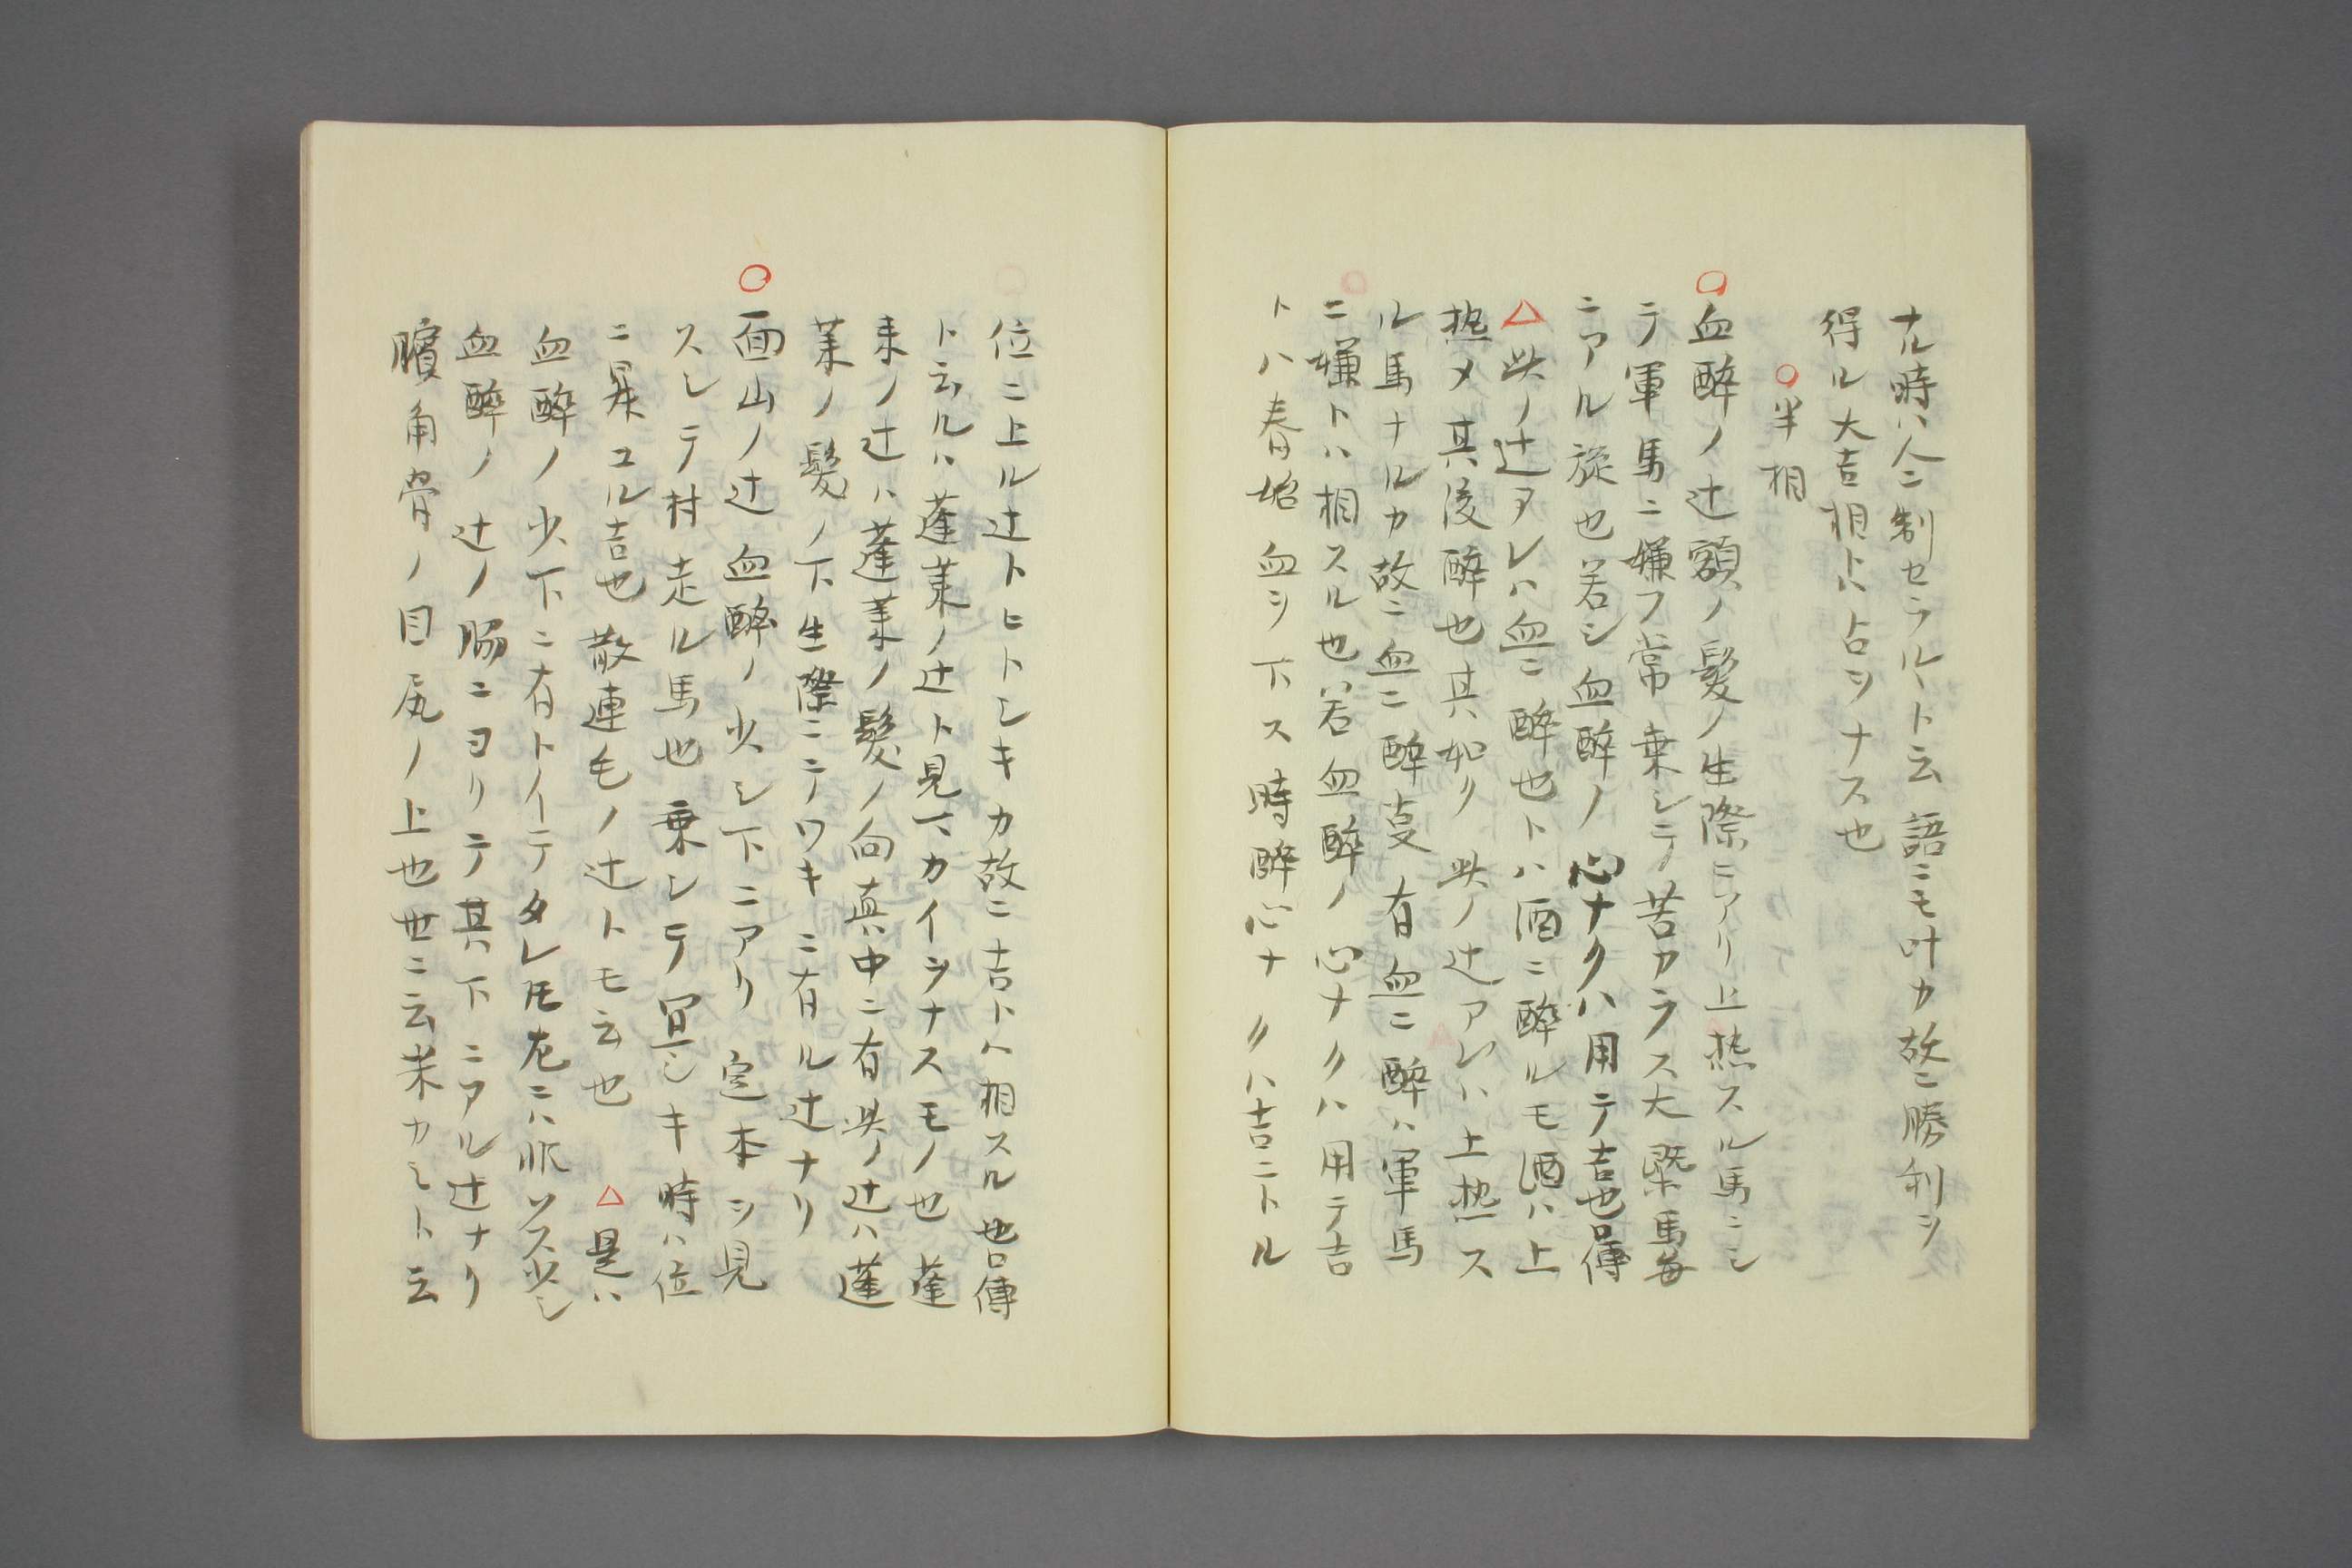 ナル時ハ人ニ制セラルヽト云語ニモ叶カ故ニ勝利ヲ
得ル大吉相トハ占ヲナス也
○半相
○血醉ノ辻額ノ髪ノ生際ニアリ上热スル馬ニシ
テ軍馬ニ嫌フ常乗シテ苦カラス大槩馬毎
ニアル旋也若シ血醉ノ心ナクハ用テ吉也口傳
△此ノ辻アレハ血ニ醉也トハ酒ニ醉ルモ酒ハ上
热メ其後醉也其如ク此ノ辻アレハ上热ス
ル馬ナルカ故ニ血ニ醉叓有血ニ醉ハ軍馬
ニ嫌トハ相スル也若血醉ノ心ナクハ用テ吉
トハ春 血ヲ下ス時醉心ナクハ吉ニトル
位ニ上ル辻トヒトシキカ故ニ吉トハ相スル也口傳
ト云ルハ蓬莱ノ辻ト見下カイヲナスモノ也蓬
莱ノ辻ハ蓬莱ノ髪ノ向真中ニ有此ノ辻ハ蓬
莱ノ髪ノ下生際ニテワキニ有ル辻ナリ
○面山ノ辻血醉ノ少シ下ニアリ定本ヲ見
スシテ村走ル馬也乗シテ冝シキ時ハ位
ニ昇ユル吉也散連毛ノ辻トモ云也△是ハ
血醉ノ少下ニ有トイテタレ𪜈左ニハ非ス少シ
血醉ノ辻ノ脇ニヨリテ其下ニアル辻ナリ
角骨ノ目尻ノ上也世ニ云米カミト云